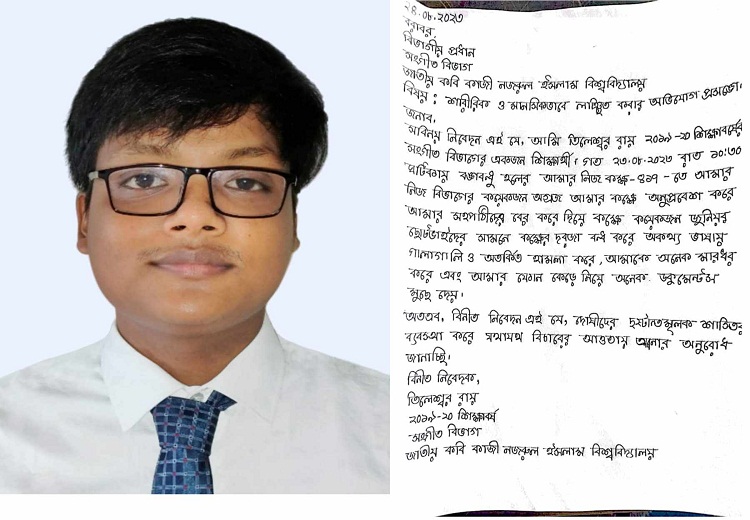 ২৪.০৮.২০২৩
বরাবর,
বিভাগীয় প্রধান
সংগীত বিভাগ
জাতীয় কবি কাজী নজরুল ইসলাম বিশ্ববিদ্যালয়
বিষয় : শারীরিক ও মানসিকভাবে লাঞ্ছিত করার অভিযোগ প্রসঙ্গে।
জনাব,
সবিনয় নিবেদন এই যে, আমি তিলেশ্বর রায় ২০১৯-২০ শিক্ষাবর্ষের
সংগীত বিভাগের একজন শিক্ষার্থী। গত ২৩.০৮.২০২৩ রাত ১০:৩০
ঘটিকায় বঙ্গবন্ধু হলের আমার নিজ কক্ষ-৪০৭-তে আমার
নিজ বিভাগের কয়েকজন অগ্রজ আমার কক্ষে অনুপ্রবেশ করে
আমার সহপাঠীদের বের করে দিয়ে কক্ষে কয়েকজন জুনিয়র
ছোটভাইদের সামনে কক্ষের দরজা বন্ধ করে অকথ্য ভাষায়
গালাগালি ও অতর্কিত হামলা করে, আমাকে অনেক মারধর
করে এবং আমার ফোন কেড়ে নিয়ে অনেক ডকুমেন্টস
মুছে দেয়।
অতএব, বিনীত নিবেদন এই যে, দোষীদের দৃষ্টান্তমূলক শাস্তির
ব্যবস্থা করে যথাযথ বিচারের আওতায় আনার অনুরোধ
জানাচ্ছি।
বিনীত নিবেদক,
তিলেশ্বর রায়
২০১৯-২০ শিক্ষাবর্ষ
সংগীত বিভাগ
জাতীয় কবি কাজী নজরুল ইসলাম বিশ্ববিদ্যালয়